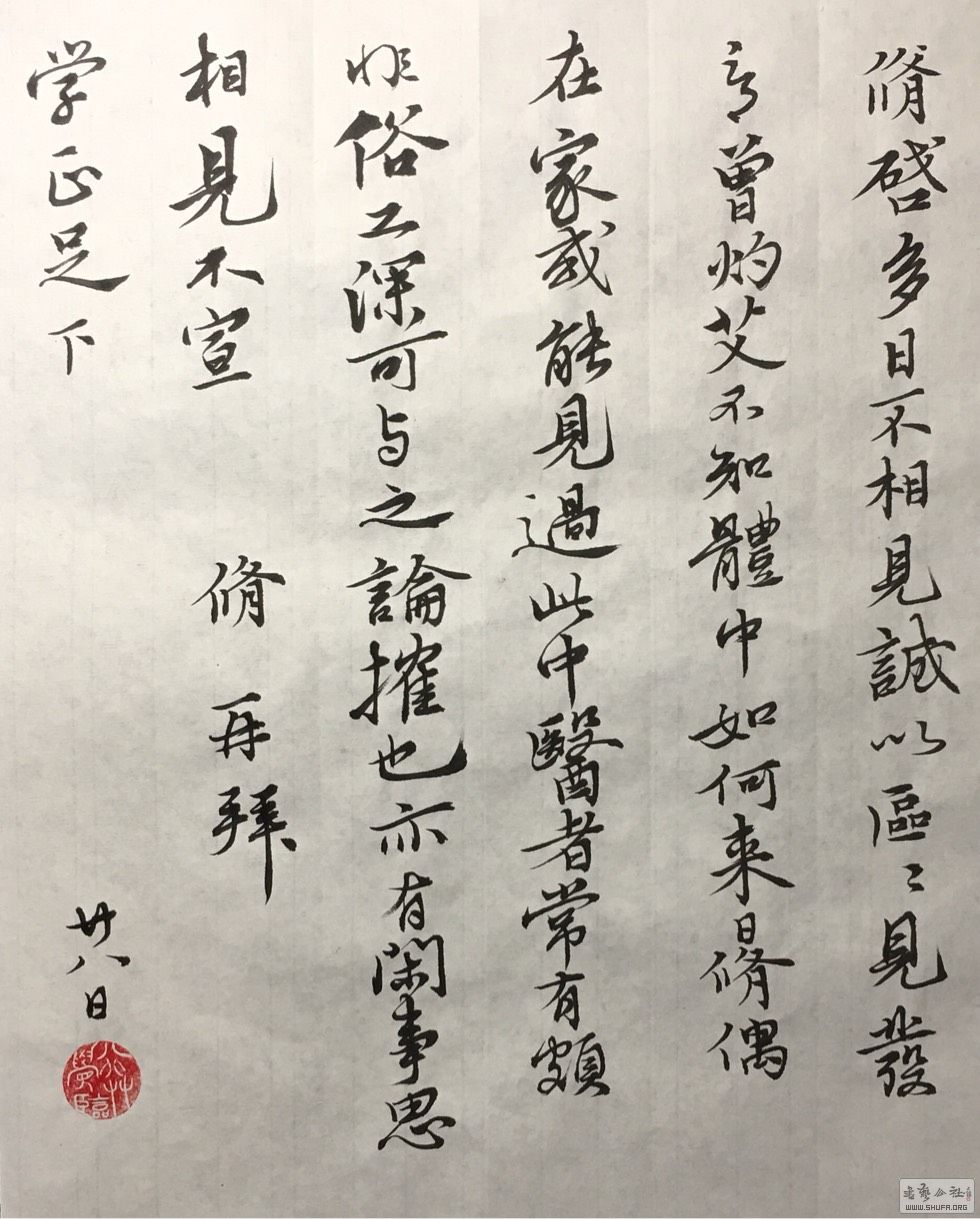 脩啓多日不相見誠以區〻見發
言曾灼艾不知體中如何來日脩偶
在家或能見過此中醫者常有頗
非俗工深可与之論搉也亦有閑事思
相見不宣 脩 再拜
学正足下
廿八日
書藝公社
WWW.SHUFA.ORG